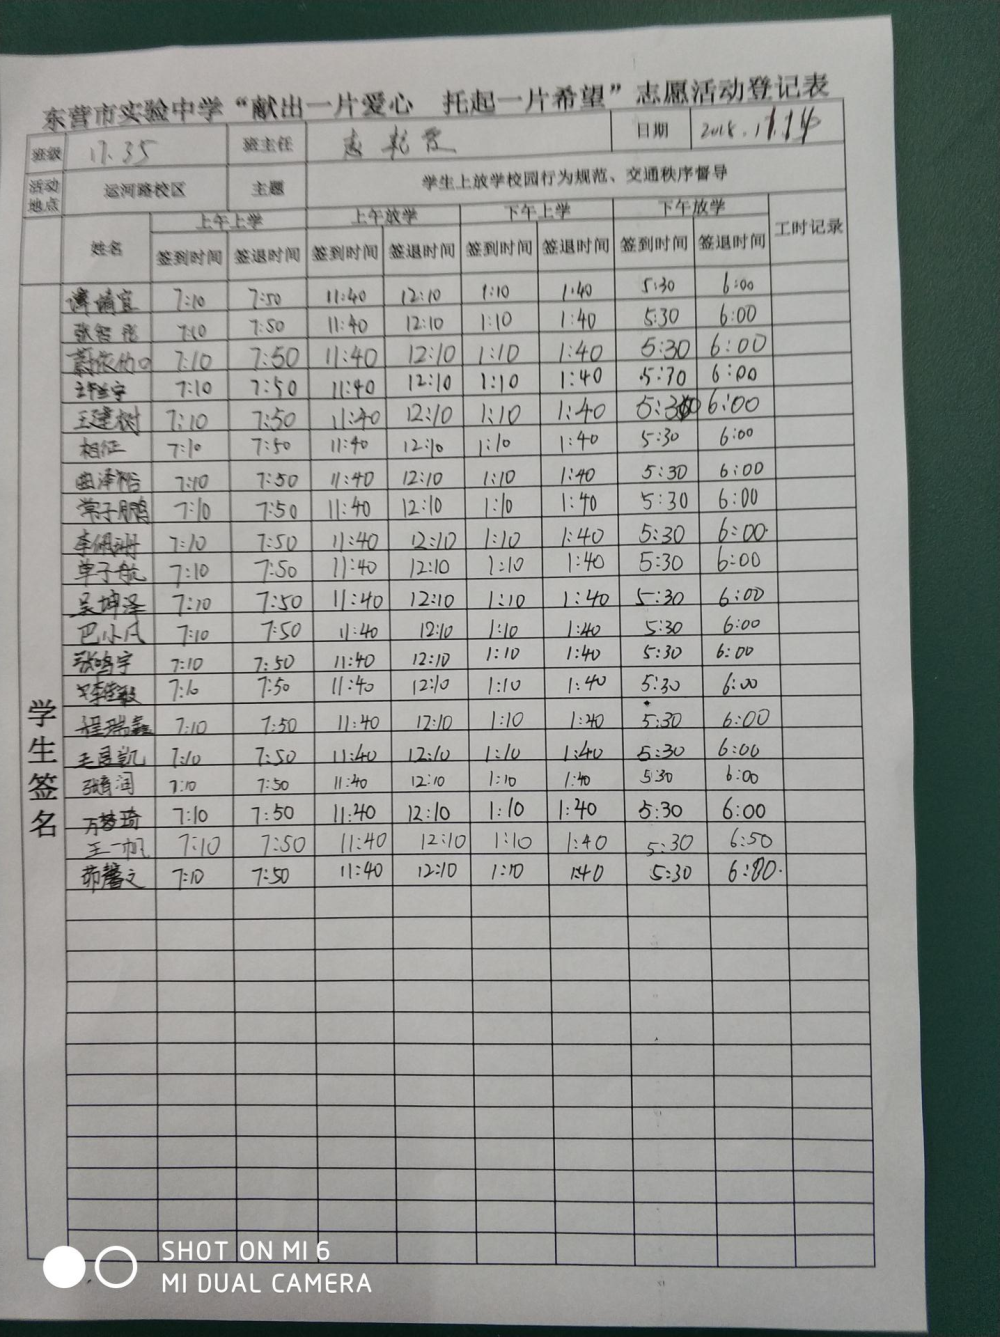 东营市实验中学“献出一片爱心 托起一片希望”志愿活动登记表
班级 17.35 班主任 日期 2018.11.14
活动地点 运河路校区 主题 学生上放学校园行为规范、交通秩序督导
姓名 上午上学 上午放学 下午上学 下午放学 工时记录
签到时间 签退时间 签到时间 签退时间 签到时间 签退时间 签到时间 签退时间
学生签名
7:10 7:50 11:40 12:10 1:10 1:40 5:30 6:00
7:10 7:50 11:40 12:10 1:10 1:40 5:30 6:00
7:10 7:50 11:40 12:10 1:10 1:40 5:30 6:00
7:10 7:50 11:40 12:10 1:10 1:40 5:70 6:00
王建树 7:10 7:50 11:40 12:10 1:10 1:40 5:30 6:00
相征 7:10 7:50 11:40 12:10 1:10 1:40 5:30 6:00
曲泽裕 7:10 7:50 11:40 12:10 1:10 1:40 5:30 6:00
常子鹏 7:10 7:50 11:40 12:10 1:10 1:40 5:30 6:00
李佩珊 7:10 7:50 11:40 12:10 1:10 1:40 5:30 6:00
单子航 7:10 7:50 11:40 12:10 1:10 1:40 5:30 6:00
吴坤泽 7:10 7:50 11:40 12:10 1:10 1:40 5:30 6:00
巴小凡 7:10 7:50 11:40 12:10 1:10 1:40 5:30 6:00
张鸣宇 7:10 7:50 11:40 12:10 1:10 1:40 5:30 6:00
7:10 7:50 11:40 12:10 1:10 1:40 5:30 6:00
程瑞鑫 7:10 7:50 11:40 12:10 1:10 1:40 5:30 6:00
7:10 7:50 11:40 12:10 1:10 1:40 5:30 6:00
7:10 7:50 11:40 12:10 1:10 1:40 5:30 6:00
万梦琦 7:10 7:50 11:40 12:10 1:10 1:40 5:30 6:00
王一帆 7:10 7:50 11:40 12:10 1:10 1:40 5:30 6:50
茹馨文 7:10 7:50 11:40 12:10 1:10 1:40 5:30 6:00.
SHOT ON MI 6
MI DUAL CAMERA